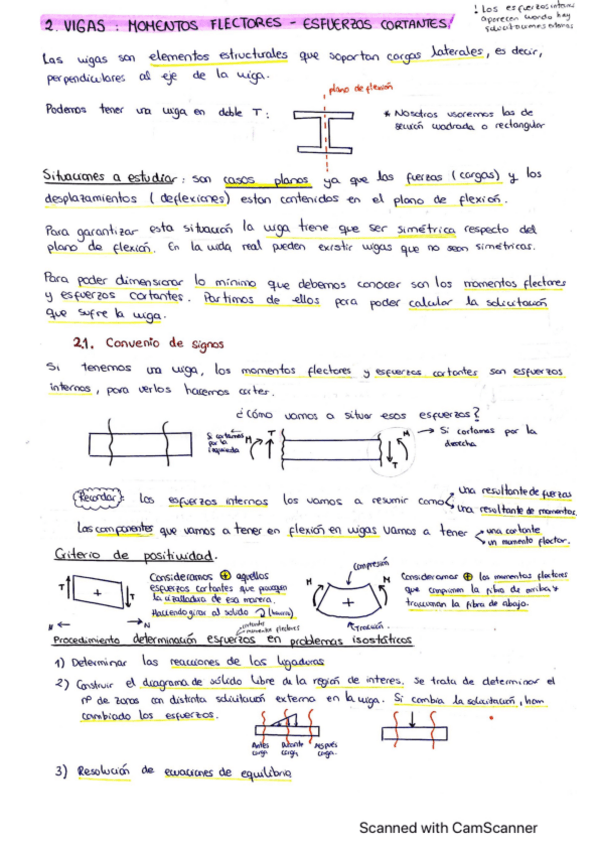 2. VIGAS : MOMENTOS FLECTORES - ESFUERZOS CORTANTES
! Los esfuerzos internos
aparecen cuando hay
solicitaciones externas
Las vigas son elementos estructurales que soportan cargas laterales, es decir,
perpendiculares al eje de la viga.
plano de flexión
Podemos tener una viga en doble T:
* Nosotros usaremos las de
sección cuadrada o rectangular
Situaciones a estudiar: son casos planos ya que las fuerzas (cargas) y los
desplazamientos (deflexiones) estan contenidos en el plano de flexión.
Para garantizar esta situación la viga tiene que ser simétrica respecto del
plano de flexión. En la vida real pueden existir vigas que no sean simétricas.
Para poder dimensionar lo mínimo que debemos conocer son los momentos flectores
y esfuerzos cortantes. Partimos de ellos para poder calcular la solicitación
que sufre la viga.
2.1. Convenio de signos
Si tenemos una viga, los momentos flectores y esfuerzos cortantes son esfuerzos
internos, para verlos hacemos cortes.
¿Cómo vamos a situar esos esfuerzos?
Si cortamos
por la
izquierda
M T
M
T
→ Si cortamos por la
derecha
Recordar: Los esfuerzos internos los vamos a resumir como
una resultante de fuerzas
una resultante de momentos.
Las componentes que vamos a tener en flexión en vigas vamos a tener
una cortante
un momento flector.
Criterio de positividad.
T + T
N ← → N
Consideramos + aquellos
esfuerzos cortantes que
la cizalladura de esa manera.
Haciendo girar al sólido
compresión
M + M
tracción
Consideramos + los momentos flectores
que compriman la fibra de arriba y
traccionan la fibra de abajo.
cortante
momento flectores
Procedimiento determinación esfuerzos en problemas isostáticos
1) Determinar las reacciones de las ligaduras
2) Construir el diagrama de sólido libre de la región de interes. Se trata de determinar el
nº de zonas con distinta solicitación externa en la viga. Si cambia la solicitación, han
cambiado los esfuerzos.
Antes carga
Durante carga
Después carga
3) Resolución de ecuaciones de equilibrio
Scanned with CamScanner